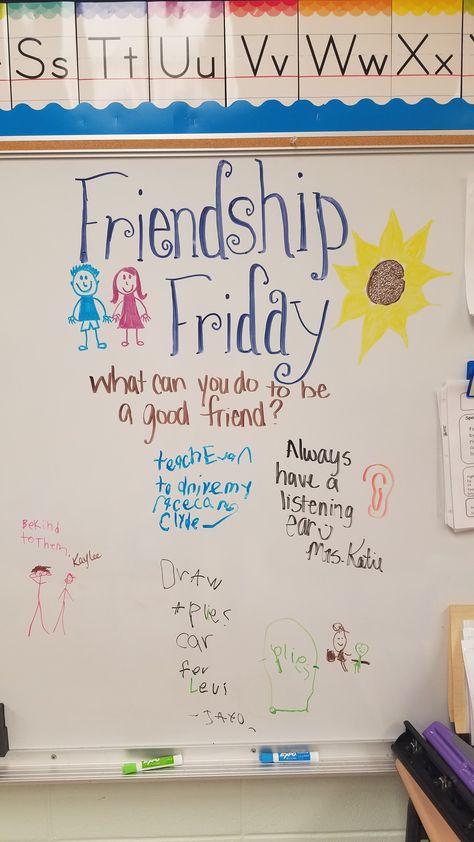 Ss Tt Uu Vv Ww Xx
Friendship
Friday
What can you do to be
a good friend?
teach Evan
to drive my
racecar
Clyde
Always
have a
listening
ear
Mrs. Katie
Be Kind
to Them,
Kaylee
Draw
a plies
car
for
Levi
- JAXO
plies
expo
expo